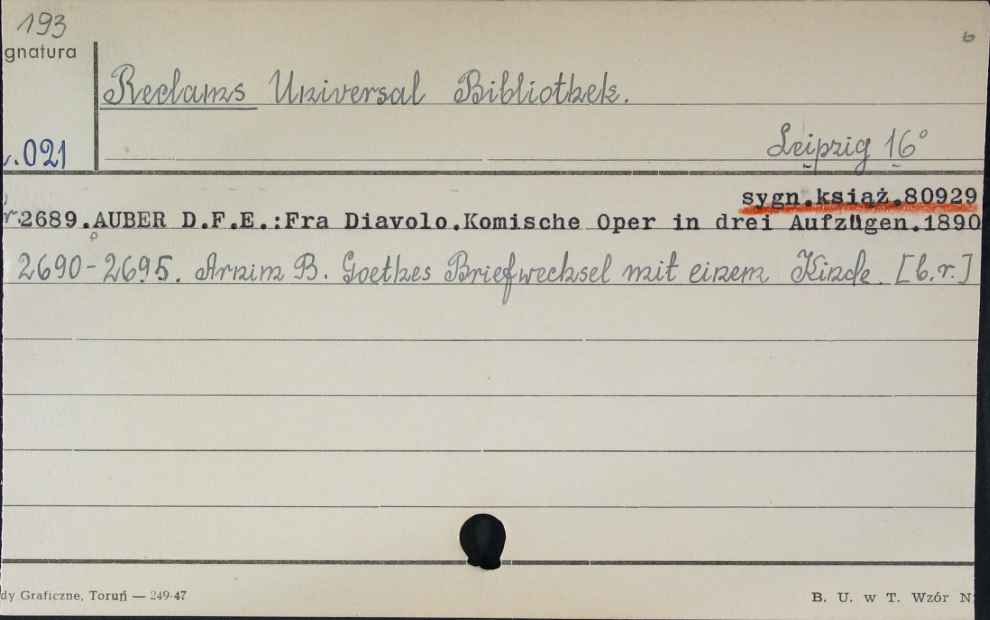 193
6
gnatura
Reclams Universal Bibliothek.
Leipzig 16°
.021
sygn.książ.80929
r.2689.AUBER D.F.E.:Fra Diavolo.Komische Oper in drei Aufzügen.1890
2690-2695. Arnim B. Goethes Briefwechsel mit einem Kinde. [b.r.]
dy Graficzne, Toruń — 249-47
B. U. w T. Wzór N